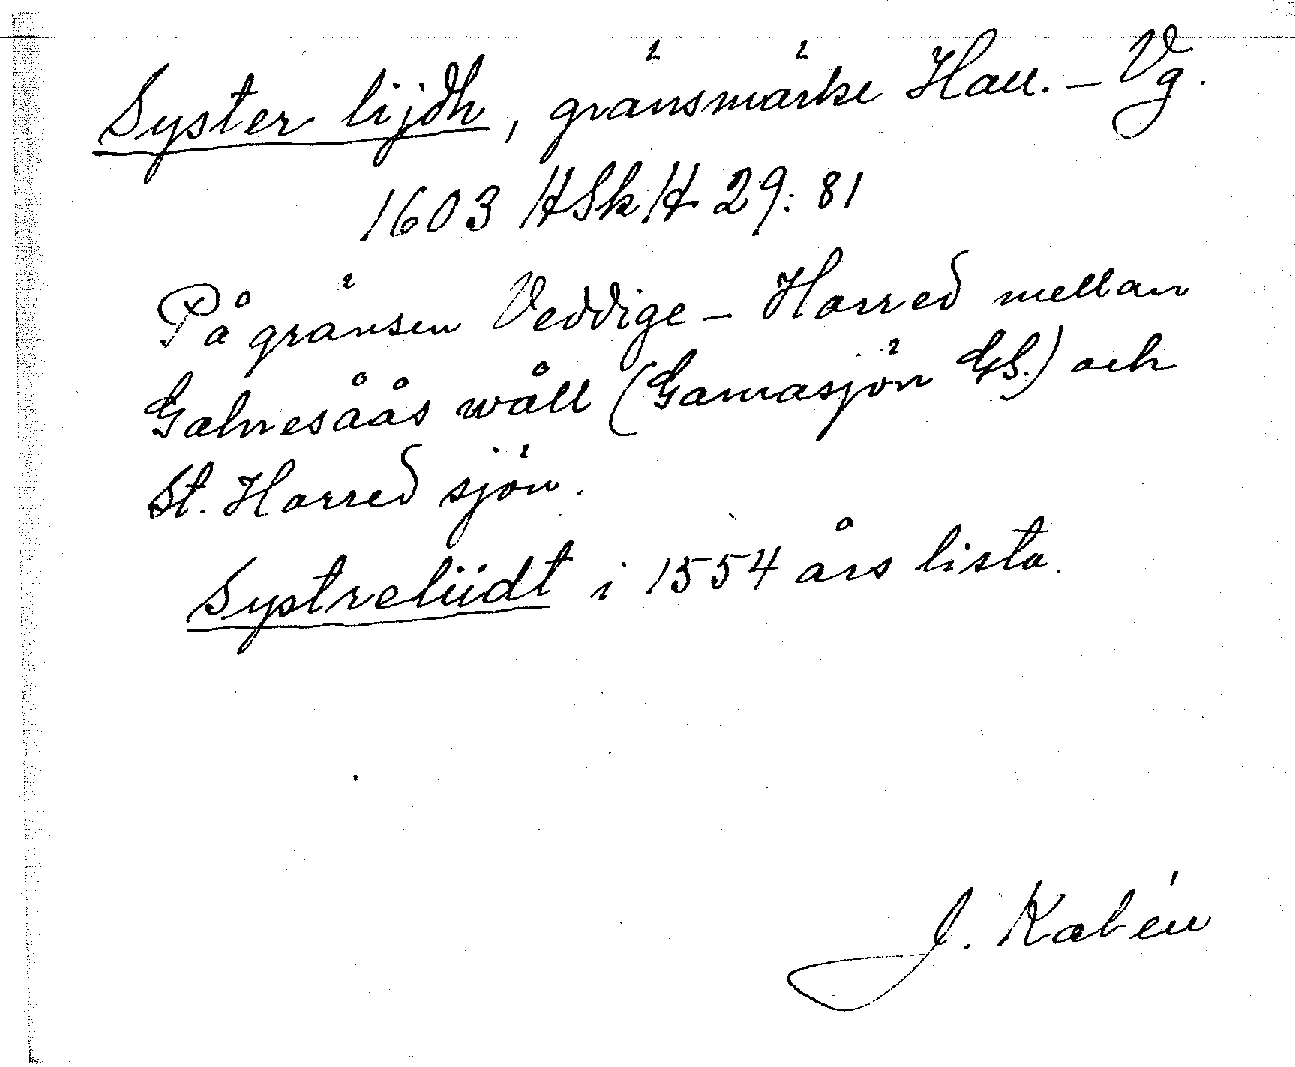 Syster lijdh, gränsmärke Hall. - Vg.
1603 HSkH 29:81
På gränsen Veddige - Horred mellan
Galnesåås wåll (Garnasjön GS.) och
St. Horred sjön.
Systreliidt i 1554 års lista.
J. Kalén